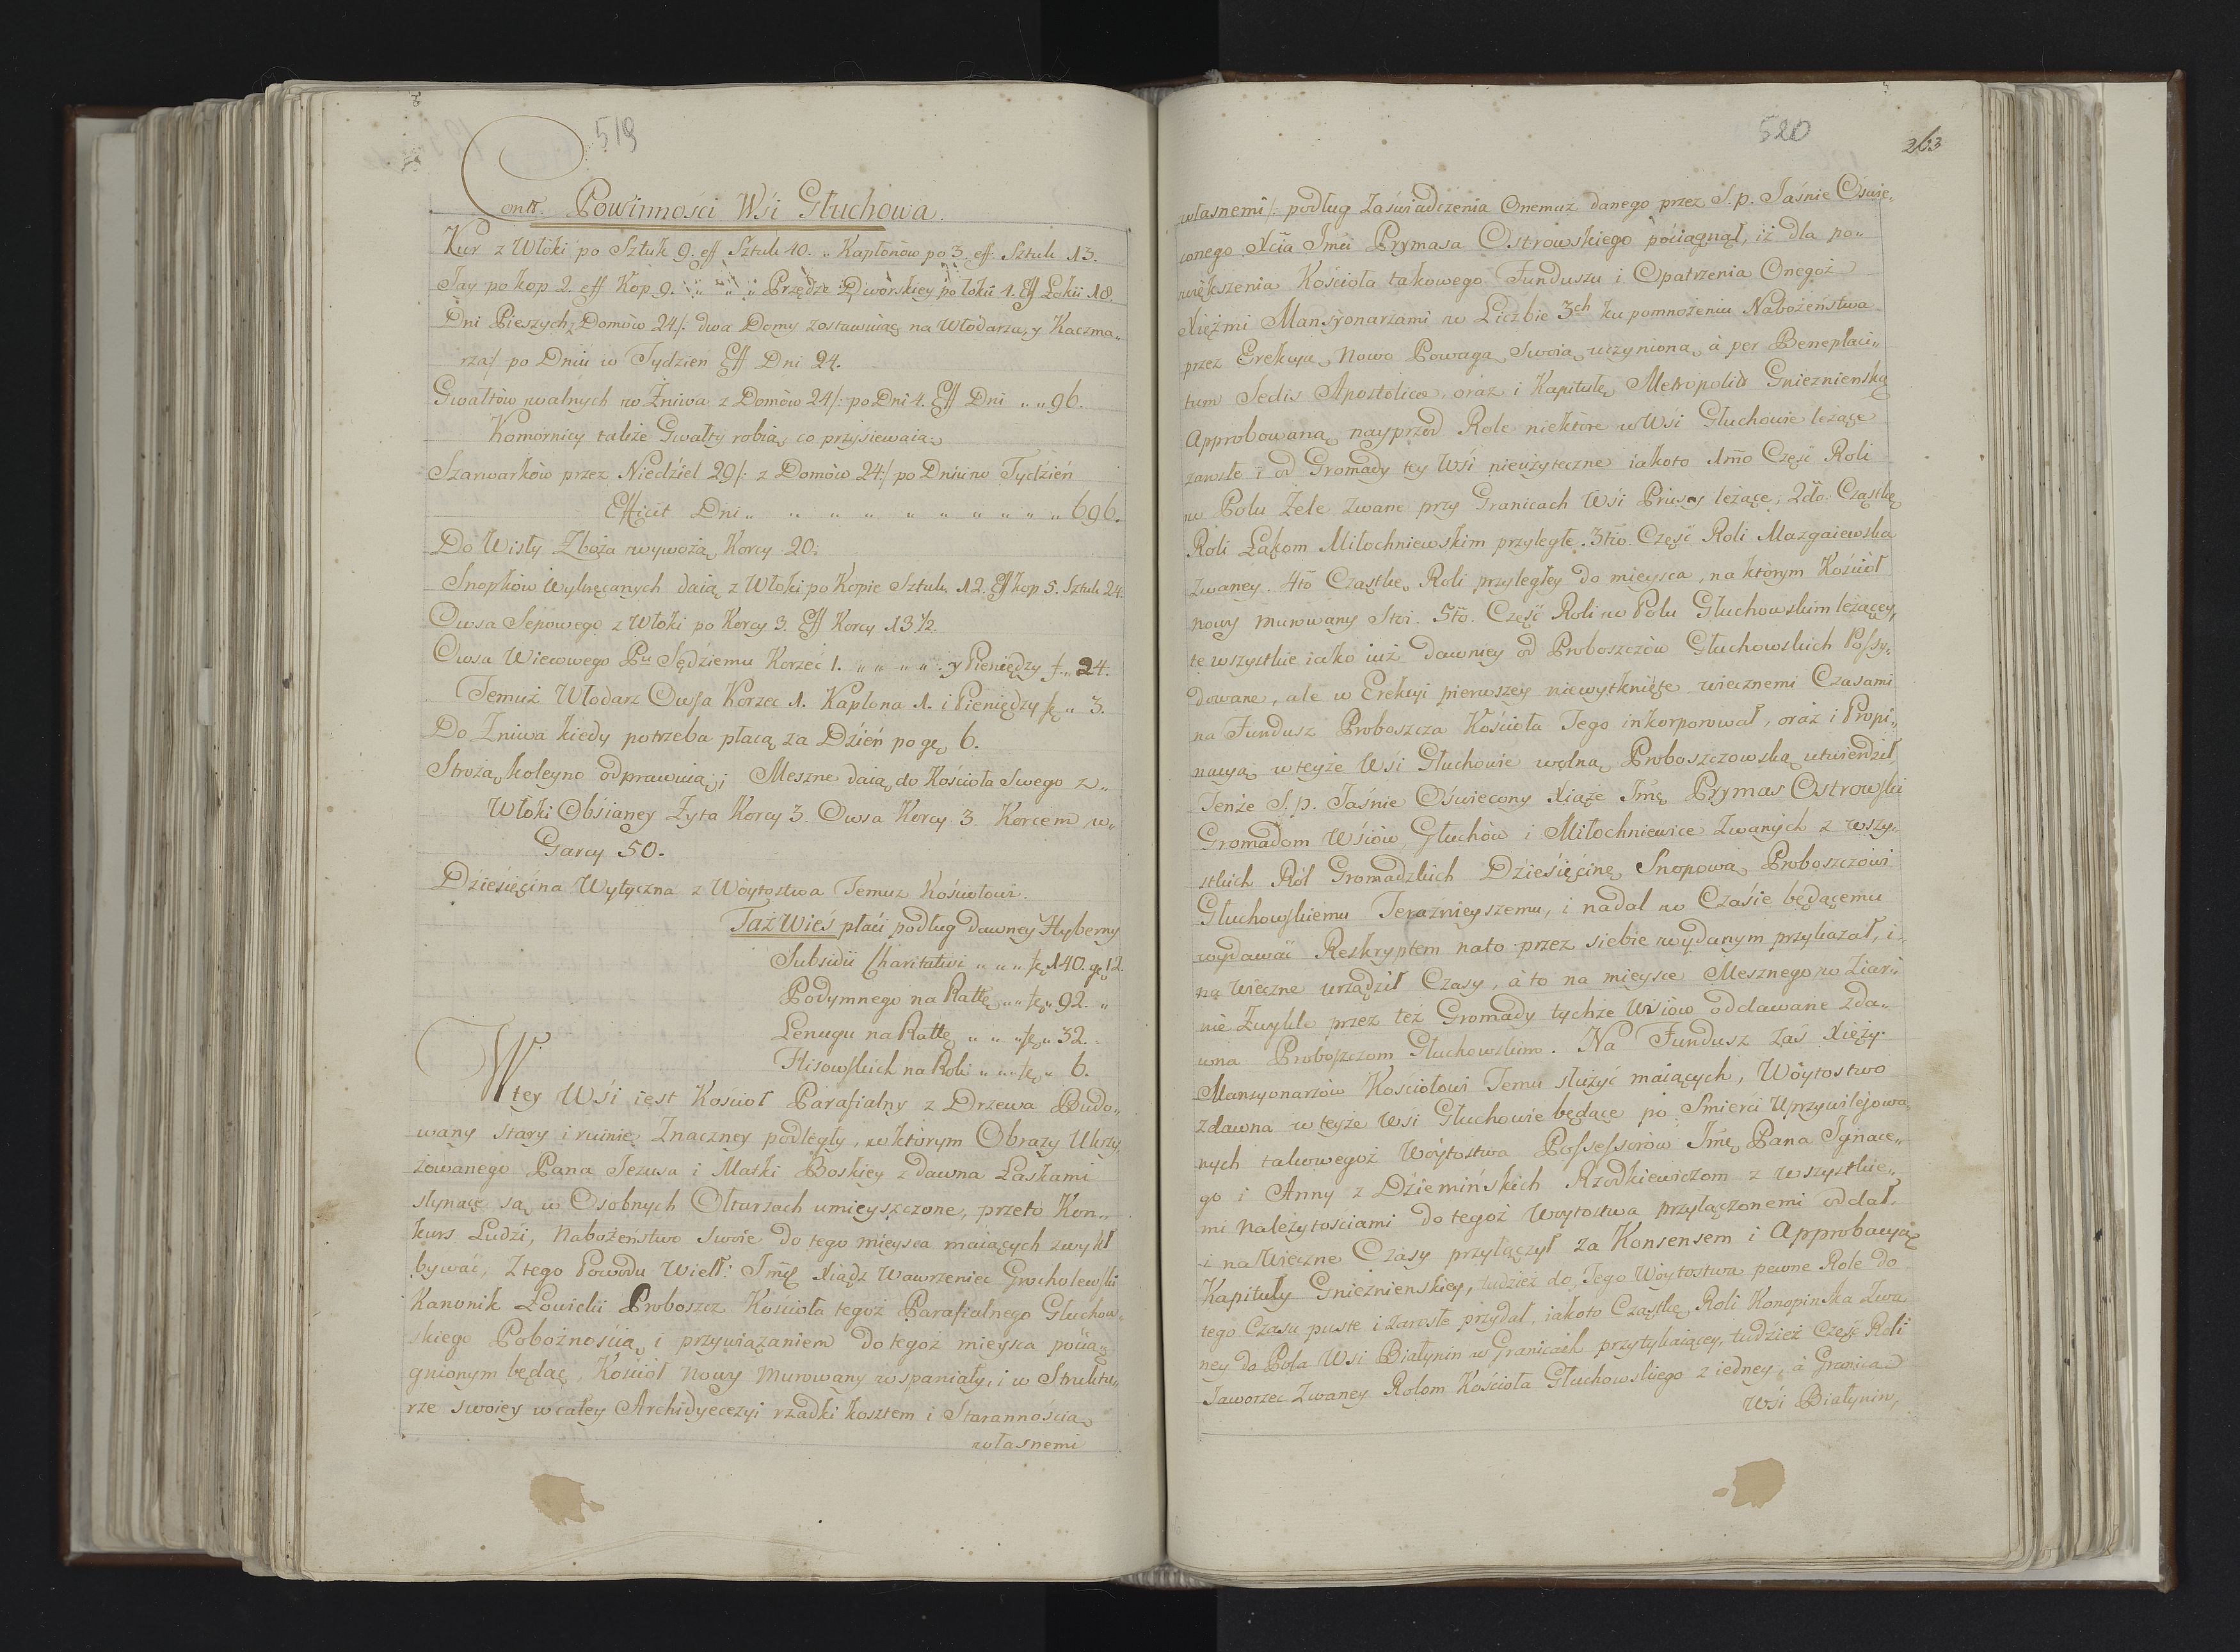 519
Contt. Powinności Wśi Głuchowa.
Kur z Włoki po Sztuk 9. eff Sztuk 40. „ Kapłonów po 3. eff: Sztuk 13.
Jay po kop 2. eff Kop 9. „ „ „ Przędze Dworskiey po łokci 4. Eff Łokci 18.
Dni Pieszych z Domów 24/: dwa Domy zostawuiąc na Włodarza, y Kaczma„
rza/ po Dniu w Tydzień Eff Dni 24.
Gwałtów walnych w Żniwa z Domów 24/: po Dni 4. Eff Dni „ „ 96.
Komornicy także Gwałty robią co przysiewaią.
Szarwarków przez Niedźiel 29/: z Domów 24:/ po Dniu w Tydźień
Efficit Dni „ „ „ „ „ „ „ „ „ „ 696.
Do Wisły Zboża wywożą Korcy 20.
Snopków Wykręcanych daią z Włoki po Kopie Sztuk 12. Eff kop 5. Sztuk 24.
Owsa Sepowego z Włoki po Korcy 3. Eff Korcy 13 1/2.
Owsa Wiecowego Pu Sędziemu Korzeć 1. „ „ „ „ y Pieniędzy f „ 24.
Temuż Włodarz Owsa Korzec 1. Kapłona 1. i Pieniędzy fę „ 3.
Do Żniwa kiedy potrzeba płacą za Dzień po gę 6.
Strożą koleyno odprawuią; Meszne daią do Kościoła Swego z„
Włoki Obsianey Żyta Korcy 3. Owsa Korcy 3. Korcem w„
Garcy 50.
Dziesięcina Wytyczna z Wóytostwa Temuz Kościołowi.
Taż Wieś płaći podług dawney Hyberny
Subsidii Charitativi „ „ „ fę 140. gę 12.
Podymnego na Rattę „ „ fę „ 92. „
Lenugu na Rattę „ „ „ fę „ 32. „
Flisowskich na Roli „ „ „ fę „ 6.
W tey Wśi iest Kościoł Parafialny z Drzewa Budo„
wany stary i ruinie Znaczney podległy, w którym Obrazy Ukrzy
żowanego Pana Jezusa i Matki Boskiey z dawna Łaskami
słynące są w Osobnych Ołtarzach umieyszczone, przeto Kon„
kurs Ludźi, Nabożeństwo swoie do tego mieysca maiących zwykł
bywać, Z tego Powodu Wiel: Jmć Xiądz Wawrzeniec Grocholewski
Kanonik Łowicki Proboszcz Kościoła tegoż Parafialnego Głuchow„
skiego Pobożnością i przywiązaniem do tegoż mieysca pocią„
gnionym będąc, Kościół Nowy Murowany wspaniały, i w Struktu„
rze swoiey w całey Archidyecezyi rzadki kosztem i Starannością
własnemi
520
263
własnemi/: podług Zaświadczenia Onemuż danego przez S. p. Jaśnie Oświe„
conego Xcia Jmći Prymasa Ostrowskiego pociągnął, iż dla po„
większenia Kościoła takowego Funduszu i Opatrzenia Onegoż
Xięźmi Mansyonarzami w Liczbie 3ch ku pomnożeniu Nabożeństwa
przez Erekcyę Nowo Powagą Swoią uczynioną à per Beneplaci„
tum Sedis Apostolicæ, oraz i Kapitułę Metropolit: Gnieznienską
Approbowaną nayprzód Role niektóre w Wśi Głuchowie leżące
zawsłe i od Gromady tey Wśi nieużyteczne iakoto 1mo Część Roli
w Polu Żele zwane przy Granicach Wśi Prusy leżące, 2do. Cząstkę
Roli Łąkom Miłochniewskim przyległe. 3tio. Część Roli Mazgaiewska
zwaney. 4to Cząstkę Roli przyległey do mieysca, na którym Kościół
nowy murowany stoi. 5to. Część Roli w Polu Głuchowskim leżącey,
te wszystkie iako iuż dawniey od Proboszczów Głuchowskich Possy„
dowane, ale w Erekcyi pierwszey niewytknięte wiecznemi Czasami
na Fundusz Proboszcza Kościoła Tego inkorporował, oraz i Propi„
nacyą w teyże Wśi Głuchowie wolną Proboszczowską utwierdził,
Tenże S. p. Jaśnie Oświecony Xiąże Jmć Prymas Ostrowski
Gromadom Wśiów, Głuchów i Miłochniewice zwanych z wszy„
stkich Ról Gromadzkich Dziesięcinę Snopową Proboszczowi
Głuchowskiemu Teraźnieyszemu, i nadal w Czaśie będącemu
wydawać Reskryptem na to przez siebie wydanym przykazał, i„
na Wieczne urządził Czasy, à to na mieysce Mesznego w Ziar„
nie zwykle przez też Gromady tychże Wsiów oddawane zda„
wna Proboszczom Głuchowskim. Na Fundusz zaś Xięży
Mansyonarzów Kościołowi Temu służyć maiących, Wóytostwo
Zdawna w teyże Wsi Głuchowie będące po Smierći Uprzywilejowa„
nych takowegoż Wóytostwa Possessorów Jmć Pana Ignace„
go i Anny z Dziemińskich Rzodkiewiczom z wszystkie„
mi Należytościami do tegoż Woytostwa przyłączonemi oddał,
i na Wieczne Czasy przyłączył za Konsensem i Approbacyą
Kapituły Gnieźnienskiey, tudzież do Tego Wóytostwa pewne Role do
tego Czasu puste i zarosłe przydał, iakoto Cząstkę Roli Konopinska Zwa„
ney do Pola Wsi Białynin w Granicach przytykaiącey, tudzież Część Roli
Jaworzec Zwaney Rolom Kościoła Głuchowskiego z iedney, à Granica
Wśi Białynin,